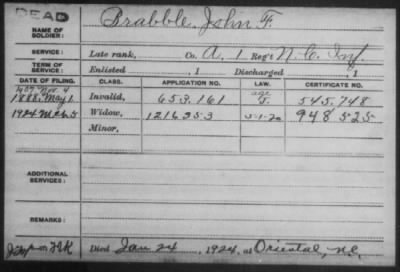 DEAD
NAME OF SOLDIER: Brabble, John F.
SERVICE: Late rank, Co. A, 1 Reg't N.C. Inf.
TERM OF SERVICE: Enlisted , 1 Discharged , 1
DATE OF FILING. CLASS. APPLICATION NO. LAW. CERTIFICATE NO.
1907 Nov. 4 age
1888, May 1 Invalid, 653.161 S. 545.748
1924 Mch 5 Widow, 1216253 5-1-20 948525
Minor,
ADDITIONAL SERVICES:
REMARKS:
Died Jan 24, 1924, at Oriental, N.C.